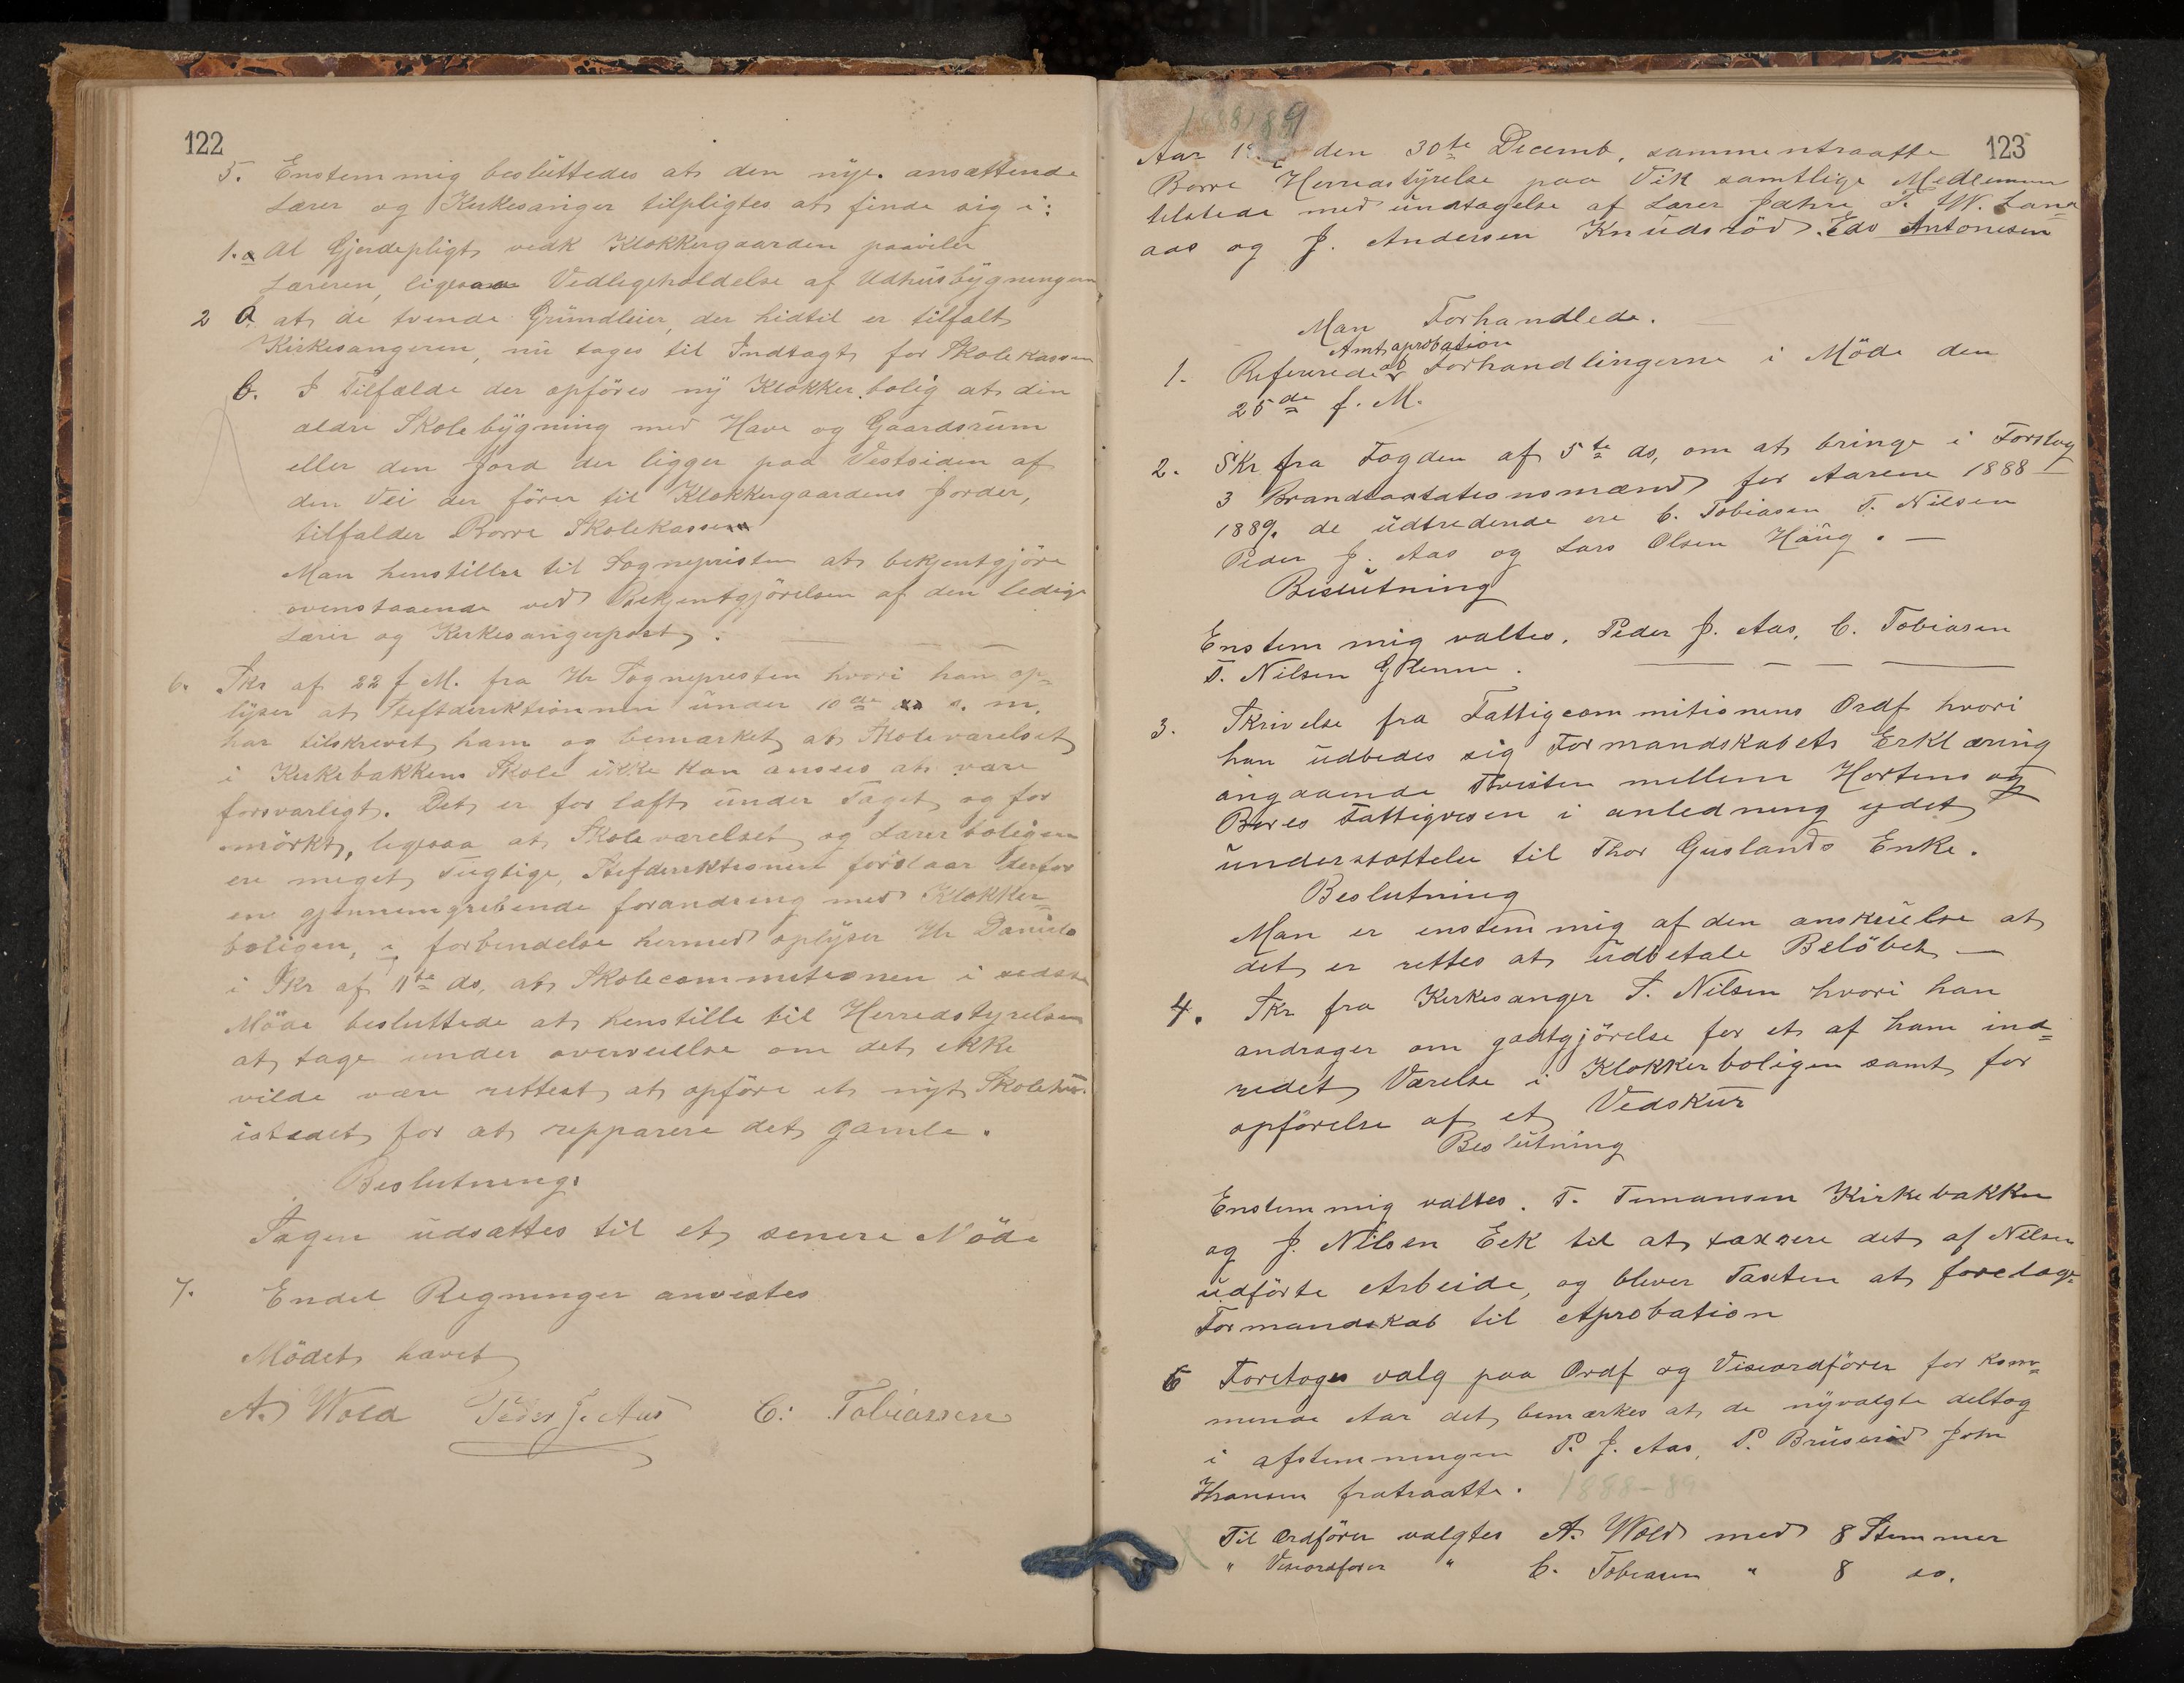 122
5. Enstemmig besluttedes at den nye ansættende
Lærer og Kirkesanger tilpligtes at finde sig i:
1. a Al Gjerdepligt vedk Klokkergaarden paaviler
Læreren, ligesaa Vedligeholdelse af Udhusbygningern
2 a. at de tvende Grundleier, der hidtil er tilfalt
Kirkesangeren, nu tages til Indtægt for Skolekassen
b. I Tilfælde der opföres ny Klokkerbolig at den
ældre Skolebygning med Have og Gaardsrum
eller den Jord der ligger paa Vestsiden af
den Vei der förer til Klokkergaardens Jorder,
tilfalder Borre Skolekasse
Man henstiller til Sognepresten at bekjentgjöre
ovenstaaende ved Bekjentgjörelsen af den ledige
Lærer og Kirkesangerpost.
6. Skr af 22 f M. fra Hr Sognepresten hvori han op=
lyser at Stiftdirektionnen under 10de s. m.
har tilskrevet ham og bemærket at Skoleværelset
i Kirkebakkens Skole ikke kan ansees at være
forsvarligt. Det er for lavt under Taget og for
mörkt, ligesaa at Skoleværelset og Lærerboligen
ere meget fugtige, Stifdirektionen foreslaar derfor
en gjennemgribende forandring med Klokker=
boligen, i forbindelse hermed oplyser Hr Daniels
i Skr af 11te ds, at Skolecommitionen i sidste
Möde besluttede at henstille til Herredstyrelsen
at tage under overveielse om det ikke
vilde være rettest at opföre et nyt Skolehus
istedet for at repparere det gamle.
Beslutning.
Sagen udsættes til et senere Möde
7. Endel Regninger anvistes
Mödet hævet
A. Wold Peder J. Aas C. Tobiassen
1888/89
123
Aar den 30te Decemb. sammentraatte
Borre Herredstyrelse paa Vik samtlige Medlemmer
tilstede med undtagelse af Lærer Jahre, T. W. Lang
aas og J. Andersen Knudsröd. Edv Antonesen
Man Forhandlede.
Amtsaprobation
1. Refererede af Forhandlingerne i Möde den
25de f. M.
2. Skr fra Fogden af 5te ds, om at bringe i Forslag
3 Brandtaxtationsmænd for Aarene 1888 –
1889. de udtredende ere C. Tobiasen T. Nilsen
Peder J. Aas og Lars Olsen Haug. –
Beslutning
Enstemmig valtes. Peder J. Aas, C. Tobiasen
T. Nilsen Glenne.
3. Skrivelse fra Fattigcommitionens Ordf hvori
han udbedes sig Formandskabets Erklæring
angaaende Tvisten mellem Hortens og
Bores Fattigvesen i anledning ydet
understøttelse til Thor Guslands Enke.
Beslutning
Man er enstemmig af den anskuelse at
det er rettes at udbetale Belöbet –
4. Skr fra Kirkesanger T. Nilsen hvori han
andrager om godtgjörelse for et af ham ind=
redet Værelse i Klokkerboligen samt for
opförelse af et Vedskur
Beslutning
Enstemmig valtes. T. Timansen Kirkebakken
og J. Nilsen Eek til at taxsere det af Nilsen
udförte Arbeide, og bliver Taxten at forelæg=
Formandskab til Aprobation
5 Foretoges valg paa Ordf og Viseordförer for kom=
mende Aar det bemærkes at de nyvalgte deltog
i afstemningen P. J. Aas, P. Bruseröd John
Hansen fratraatte. 1888-89
Til Ordförer valgtes A. Wold med 8 Stemmer
" Viseordförer " C. Tobiasen " 8 do.